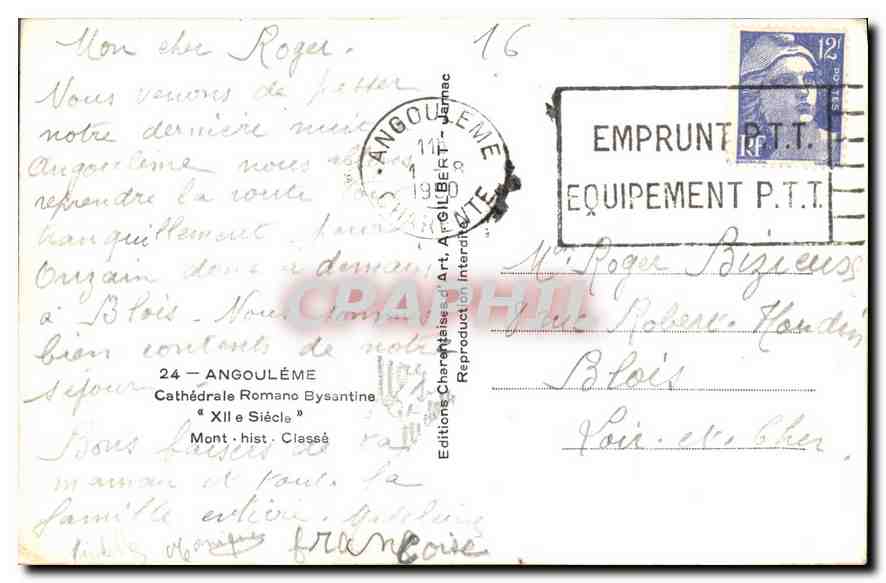 16
Mon cher Roger.
Nous venons de passer
notre dernière nuit
Angoulême nous allons
reprendre la route tout
tranquillement pour
Onzain donc à demain
à Blois. Nous sommes
bien contents de notre
séjour
Bons baisers de ta
maman et toute la
famille entière.
françoise
24 — ANGOULÉME
Cathédrale Romano Bysantine
“ XII e Siécle ”
Mont · hist · Classé
Editions Charentaises d'Art, A. GILBERT - Jarnac
Reproduction interdite
ANGOULEME
1950
CHARENTE
12F
POSTES
RF
EMPRUNT P.T.T.
EQUIPEMENT P.T.T.
Mr Roger
rue Robert-Houdin
Blois
Loir-et-Cher
CPAPHIL